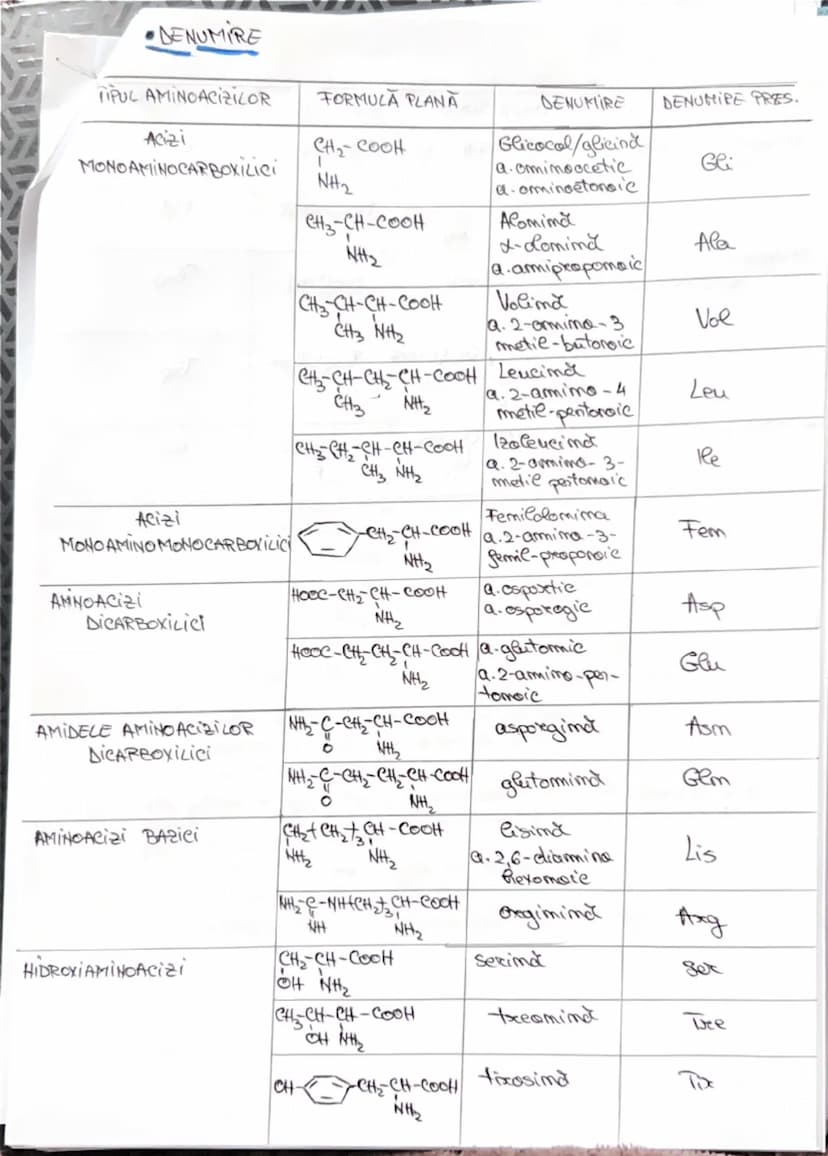 • DENUMIRE
TIPUL AMINOACIZILOR FORMULĂ PLANĂ DENUMIRE DENUMIRE PRES.
ACIZI MONOAMINOCARBOXILICI
CH₂-COOH
NH₂
Glicocol/glicină
a. aminoacetic
a. aminoetanoic
Gli
CH₃-CH-COOH
NH₂
Alanină
α-alanină
a. amipropanoic
Ala
CH₃-CH-CH-COOH
CH₃ NH₂
Valină
a. 2-amino-3
metil-butanoic
Val
CH₃-CH-CH₂-CH-COOH
CH₃ NH₂
Leucină
a. 2-amino-4
metil-pentanoic
Leu
CH₃-CH₂-CH-CH-COOH
CH₃ NH₂
Izoleucină
a. 2-amino-3-
metil pentanoic
Ile
ACIZI
MONOAMINOMONOCARBOXILICI
-CH₂-CH-COOH
NH₂
Fenilalanina
a. 2-amino-3-
fenil-propanoic
Fen
AMINOACIZI
DICARBOXILICI
HOOC-CH₂-CH-COOH
NH₂
a. aspartic
a. asparagic
Asp
HOOC-CH₂-CH₂-CH-COOH
NH₂
a. glutamic
a. 2-amino-pen-
tanoic
Glu
AMIDELE AMINOACIZILOR
DICARBOXILICI
NH₂-C-CH₂-CH-COOH
O NH₂
asparagină
Asn
NH₂-C-CH₂-CH₂-CH-COOH
O NH₂
glutamină
Gln
AMINOACIZI BAZICI
CH₂+CH₂+₃CH-COOH
NH₂ NH₂
lisină
a. 2,6-diamino
hexanoic
Lis
NH₂-C-NH+CH₂+₃CH-COOH
NH NH₂
arginină
Arg
HIDROXIAMINOACIZI
CH₂-CH-COOH
OH NH₂
serină
Ser
CH₃-CH-CH-COOH
OH NH₂
treonină
Tre
OH- -CH₂-CH-COOH
NH₂
tirosină
Tir